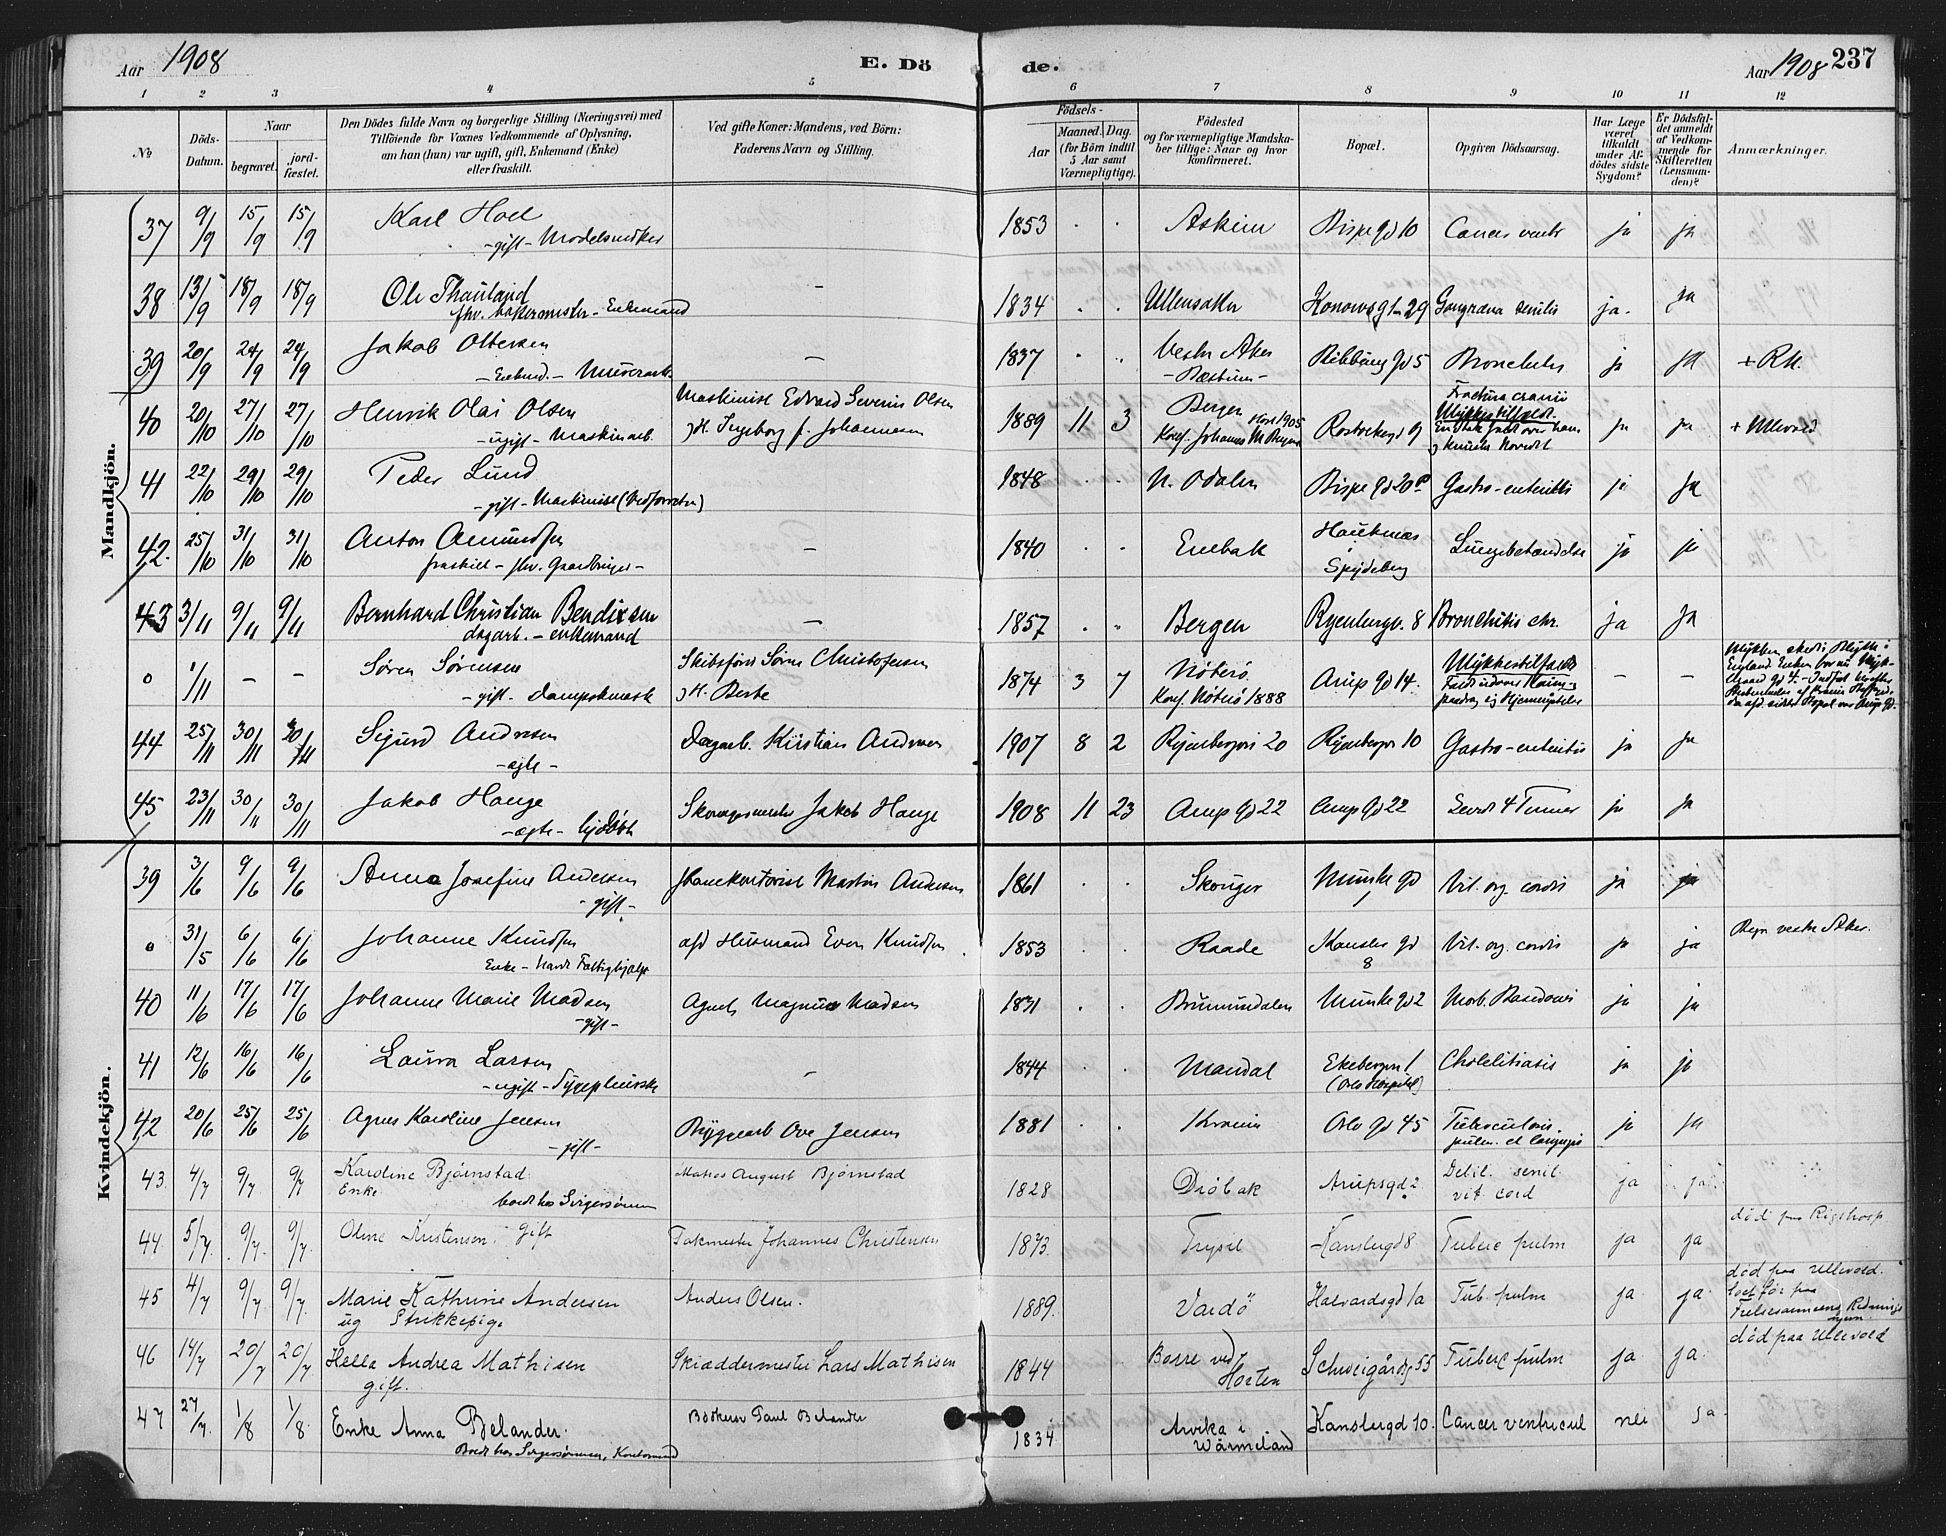 Aar 1908
E. Dö
de.
Aar 1908 237
1 2 3 4 5 6 7 8 9 10 11 12
No
Döds-Datum.
Naar
begravet.
jord-fæstet.
Den Dödes fulde Navn og borgerlige Stilling (Næringsvei) med
Tilföiende for Voxnes Vedkommende af Oplysning,
om han (hun) var ugift, gift, Enkemand (Enke)
eller fraskilt.
Ved gifte Koner: Mandens, ved Börn:
Faderens Navn og Stilling.
Födsels-
Aar
Maaned. Dag.
(for Börn indtil
5 Aar samt
Værnepligtige).
Födested
og for værnepligtige Mandska-
ber tillige: Naar og hvor
konfirmeret.
Bopæl.
Opgiven Dödsaarsag.
Har Læge
været
tilkaldt
under Af-
dödes sidste
Sygdom?
Er Dödsfal-
det anmeldt
af Vedkom-
mende for
Skifteretten
(Lensman-
den)?
Anmærkninger.
Mandkjön.
37 9/9 15/9 15/9 Karl Hoel 1853 Askim Bispegd 10 Cancer ventr ja ja
- gift - Modelsnedker
38 13/9 18/9 18/9 Ole Thauland - 1834 Ullensaker Konowsgt 29 Gangræna senilis ja ja
fhv. bakermester - Enkemand
39 20/9 24/9 24/9 Jakob Olbersen - 1837 Vestre Aker 5 ja ja + RH.
- Bærum -
40 20/10 27/10 27/10 Henrik Olai Olsen Maskinist Edvard Severin Olsen 1889 11 3 Bergen Fractura cranii ja ja + Ullevold
- ugift - Maskinarb. og H. Ingeborg f. Johannesen Konf. Johannes Ulykkestilfælde.
41 22/10 29/10 29/10 Peder Lund 1848 N. Odalen Bispegd 20 Gastro-enteritis ja ja
- gift - Maskinist
42. 25/10 31/10 31/10 Anton Amundsen - 1840 Enebak i Spydeberg Lungebetændelse ja ja
fraskilt - fhv. Gaardbruger -
43 3/11 9/11 9/11 Bernhard Christian Bendixsen - 1857 Bergen Ryenbergv. 8 Bronchitis chr. ja ja
dagarb. - enkemand
0 1/11 - - Søren Sørensen Skibsfører Sørn Christofersen 1874 3 7 Nøterø Arup gd 14. Ulykkestilfælde - -
- gift - og H. Berte Konf. Nøterø 1888
44 25/11 30/11 30/11 Sigurd Andresen Dagarb. Kristian Andresen 1907 8 2 Ryenbergvei 20 Ryenbergv 10 Gastro-enteritis ja ja
- ægte -
45 23/11 30/11 30/11 Jakob Hauge Jakob Hauge 1908 11 23 Arup gd 22 Arup gd 22 ja ja
- ægte - hjdøbt
Kvindekjön.
39 3/6 9/6 9/6 Anna Josefine Andersen Martin Andersen 1861 Skouger Munke gd 1 Vit. org. cordis ja ja
- gift -
0 31/5 6/6 6/6 Johanne Knudsen afd Husmand Even Knudsen 1853 Raade Kansler gd 8 Vit. org. cordis ja ja Begr vestre Aker.
Enke - havde Fattighjælp
40 11/6 17/6 17/6 Johanne Marie Madsen Agent Magnus Madsen 1871 Brumundalen Munke gd 2 Morb. Basedowii ja ja
- gift -
41 12/6 16/6 16/6 Laura Larsen - 1844 Mandal Ekebergvn 1 Cholelitiasis ja ja
- ugift - Sygepleierske (Oslo Hospital)
42 20/6 25/6 25/6 Agnes Karoline Jensen Bryggearb Ove Jensen 1881 Oslo gd 45 Tuberculosis ja ja
- gift - pulm. et laryngis
43. 4/7 9/7. 9/7 Karoline Bjørnstad August Bjørnstad 1828 Drøbak Arupsgd 2 Debil. senil ja ja
Enke boede hos Svigersønnen vit. cord
44. 5/7. 9/7. 9/7. Oline Kristensen. gift Johannes Christensen 1873. Trysil Kanslergd 8 Tuberc pulm ja ja død paa Rigshosp.
45 4/7 9/7. 9/7. Marie Kathrine Andersen Anders Olsen. 1889. Vardö Halvardsgd 1a Tub. pulm ja. ja. død paa Ullevold.
ug Strikkepige
46 14/7 20/7 20/7 Hella Andrea Mathisen Skræddermester Lars Mathisen 1844 Borre ved Horten Schweigårdsg 55 Tuberc pulm ja ja. død paa Ullevold
gift.
47 27/7. 1/8 1/8. Enke Anna Belander. Bødker Paul Belander 1834. Arvika i Wärmeland Kanslergd 10. Cancer ventricul nei ja
Boede hos Svigersønnen,